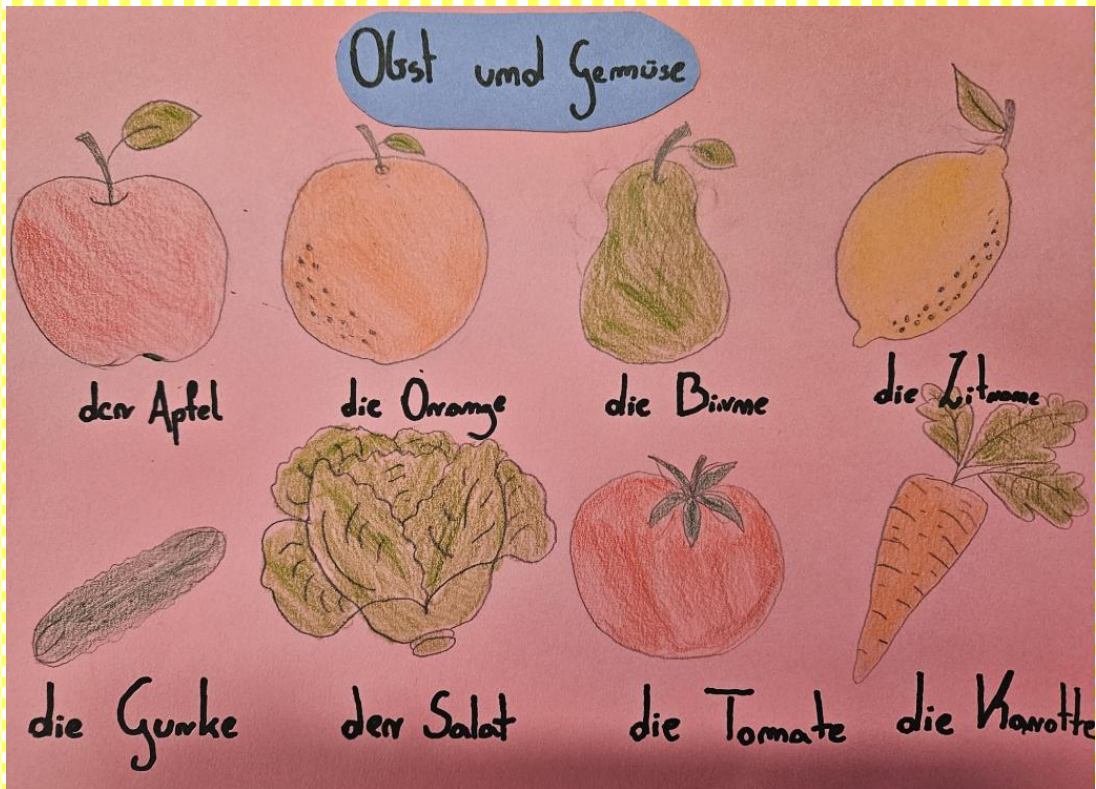 Obst und Gemüse
der Apfel
die Orange
die Birne
die Zitrone
die Gurke
der Salat
die Tomate
die Karotte